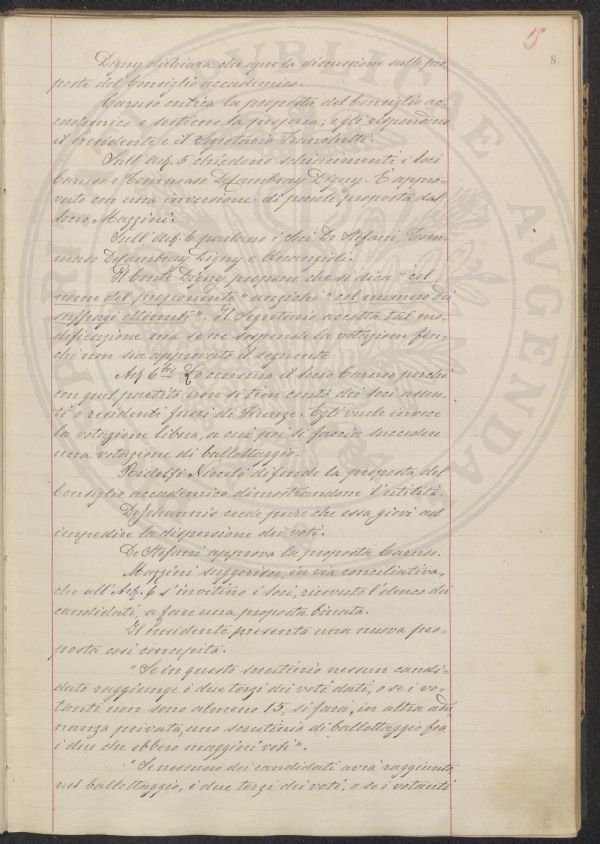 15
8.
Digny dichiara che apre la discussione sulle pro
poste del Consiglio accademico.
Caruso critica la proposta del Consiglio ac-
cademico e sostiene la propria, e gli rispondono
il Presidente e il Segretario Franchetti.
Sull'Art. 5 chiedono schiarimenti i Soci
Caruso e Tommaso De Cambray Digny. È appro-
vato con una inversione di parole, proposta dal
Socio Mazzini.
Sull'Art. 6 parlano i Soci De Stefani, Tom-
maso De Cambray Digny e
Il Conte Digny propone che si dica "col
nome del proponente" anzichè "col numero dei
suffragi ottenuti". Il Segretario accetta tal mo-
dificazione ma se ne sospende la votazione fin-
chè non sia approvato il seguente
Art. 6 bis Lo censura il socio Caruso perchè
con quel partito non si tien conto dei soci assen-
ti o residenti fuori di Firenze. Egli vuole invece
la votazione libera, a cui poi si faccia succedere
una votazione di ballottaggio.
Ridolfi Niccolò difende la proposta del
Consiglio accademico dimostrandone l'utilità.
De Johannis crede pure che essa giovi ad
impedire la dispersione dei voti.
De Stefani approva la proposta Caruso.
Mazzini suggerisce, in via conciliativa,
che all'Art. 6 s'invitino i Soci, ricevuto l'elenco dei
candidati, a fare una proposta binata.
Il Presidente presenta una nuova pro-
posta così concepita.
"Se in questo scrutinio nessun candi-
dato raggiunge i due terzi dei voti dati, o se i vo-
tanti non sono almeno 15, si farà, in altra adu
nanza privata, uno scrutinio di ballottaggio fra
i due che ebbero maggiori voti".
"Se nessuno dei candidati avrà raggiunto
nel ballottaggio, i due terzi dei voti, o se i votanti